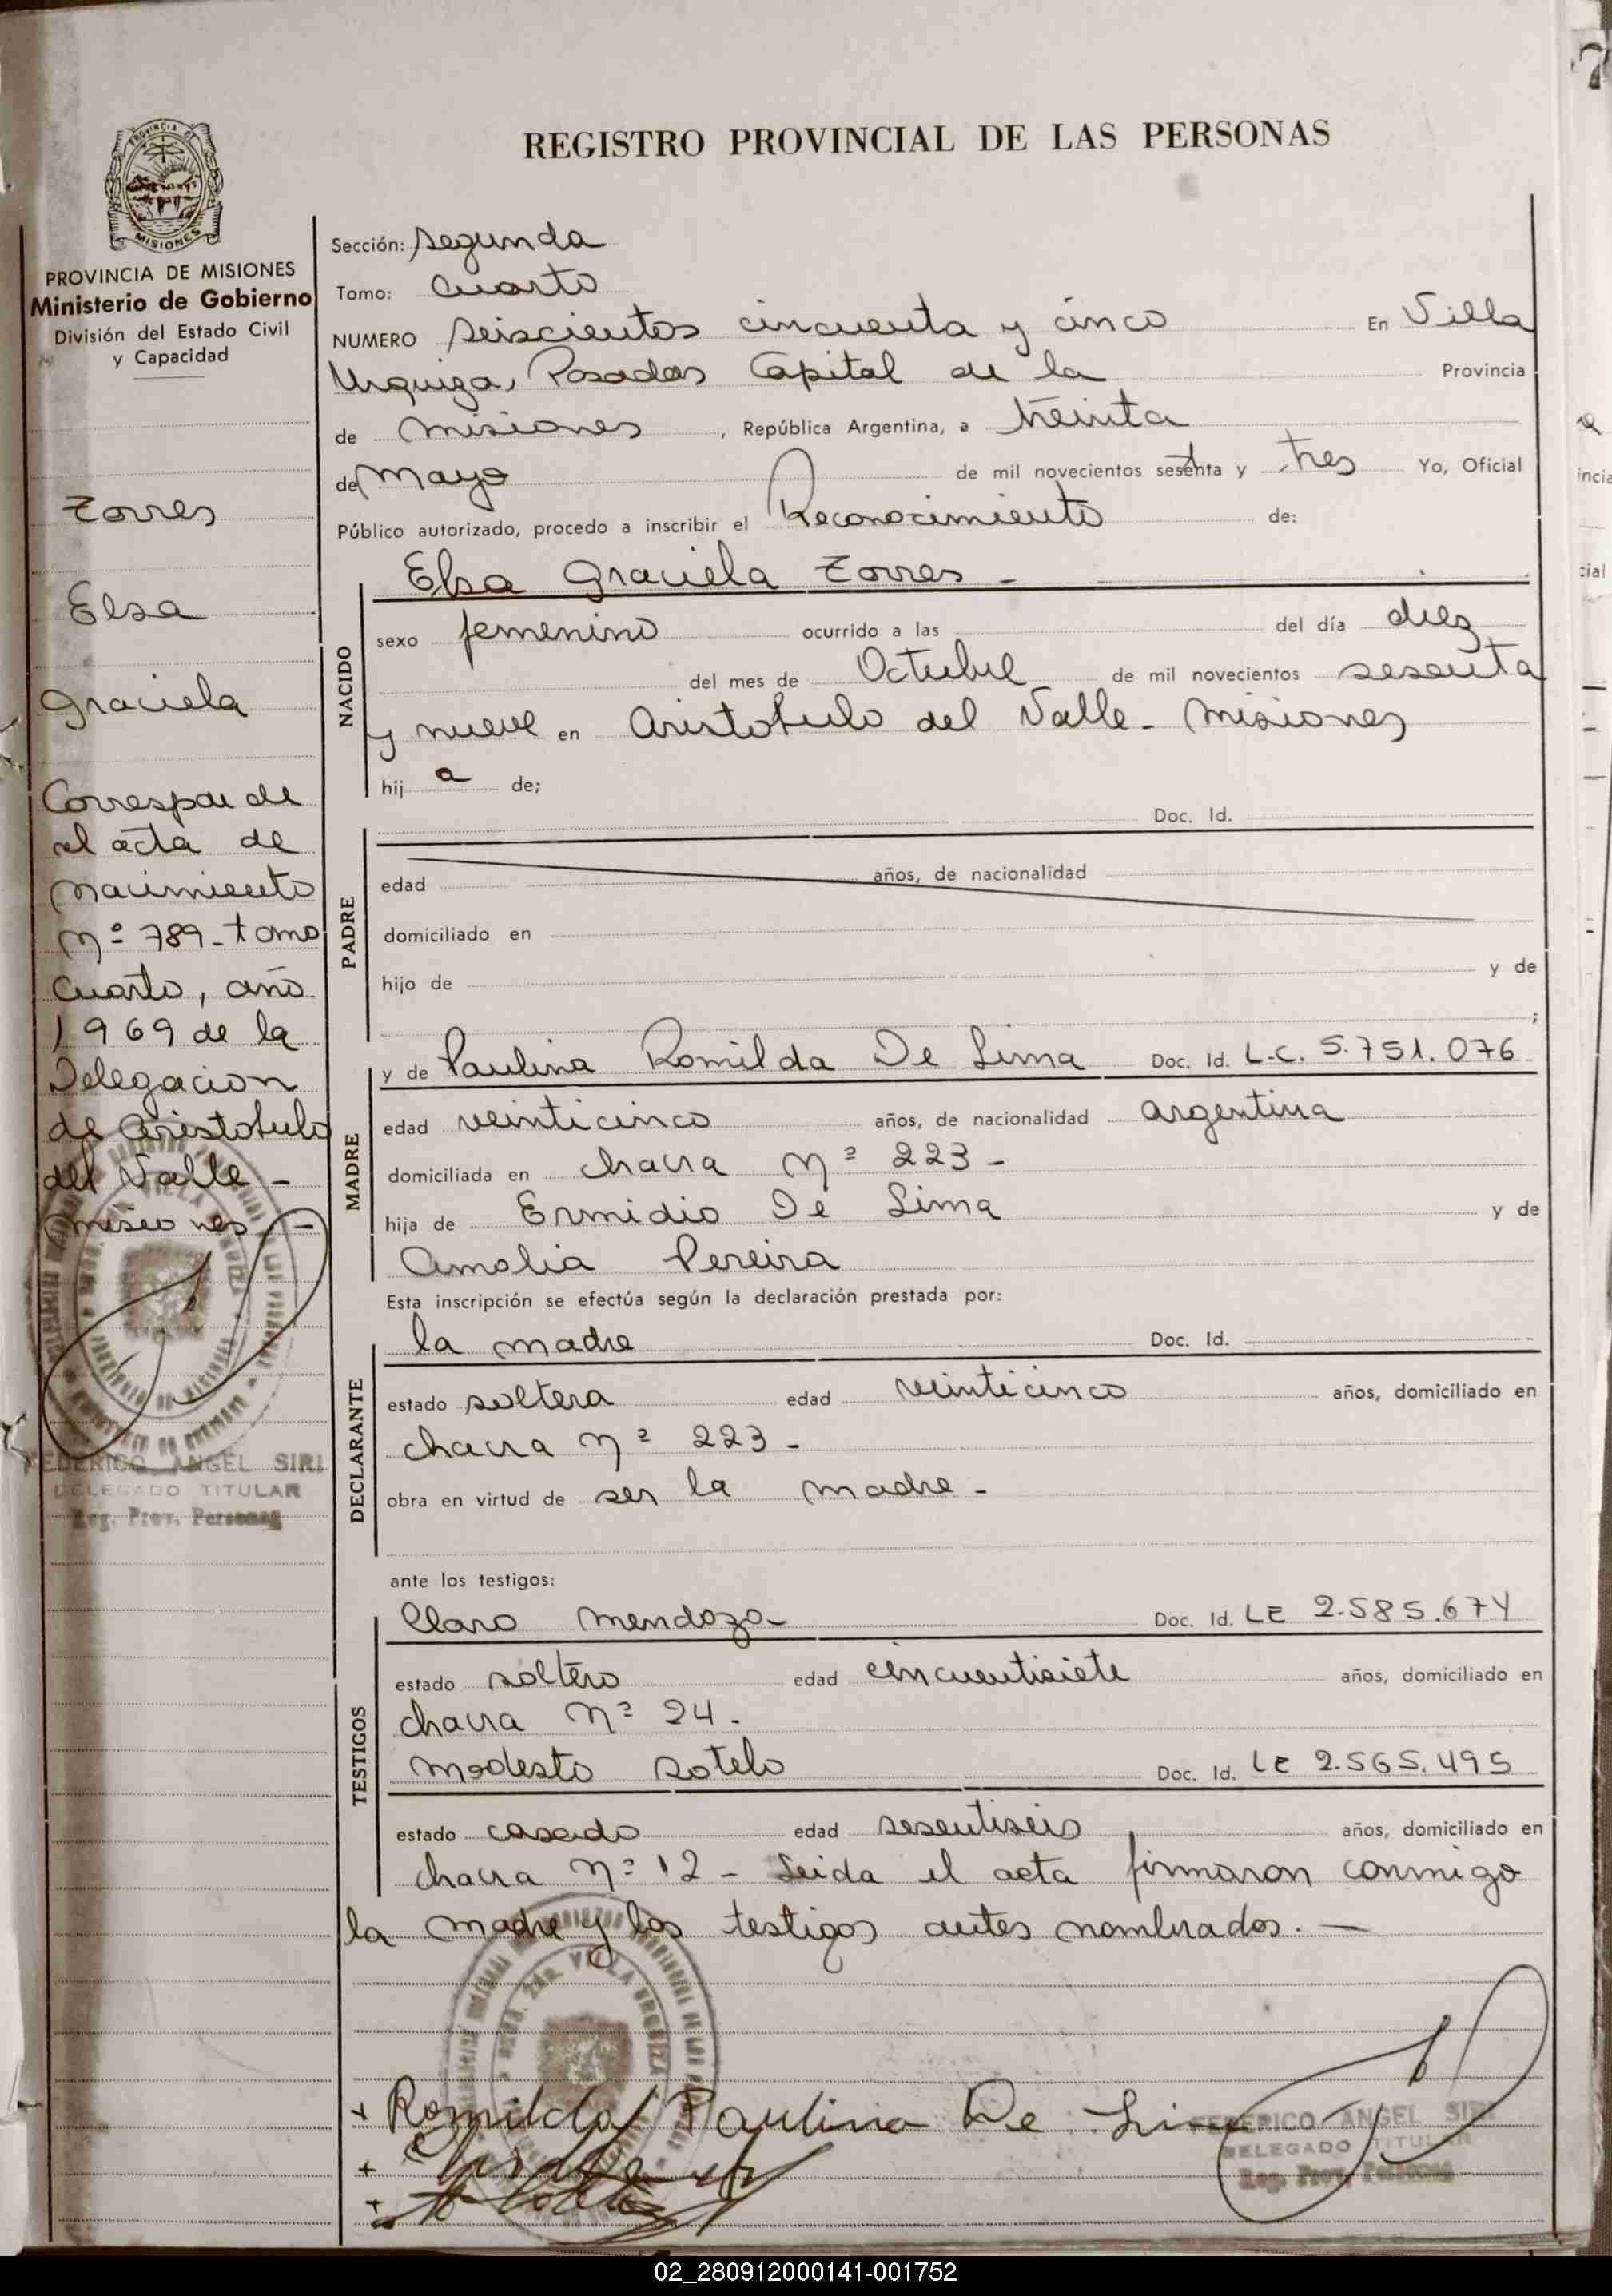 REGISTRO PROVINCIAL DE LAS PERSONAS
PROVINCIA DE
MISIONES
PROVINCIA DE MISIONES
Ministerio de Gobierno
División del Estado Civil
y Capacidad
Torres
Elsa
Graciela
Corresponde
el acta de
nacimiento
Nº 789 - tomo
cuarto, año
1969 de la
Delegacion
de Aristobulo
del Valle -
Misiones -
FEDERICO ANGEL SIRI
DELEGADO TITULAR
Reg. Prov. Personas
Sección: segunda
Tomo: cuarto
NUMERO seiscientos cincuenta y cinco En Villa
Urquiza, Posadas Capital de la Provincia
de Misiones, República Argentina, a treinta
de Mayo de mil novecientos sesenta y tres Yo, Oficial
Público autorizado, procedo a inscribir el Reconocimiento de:
NACIDO
Elsa Graciela Torres -
sexo femenino ocurrido a las del día diez
del mes de Octubre de mil novecientos sesenta
y nueve en Aristobulo del Valle - Misiones
hij a de;
PADRE
Doc. Id.
edad años, de nacionalidad
domiciliado en
hijo de y de
;
MADRE
y de Paulina Romilda De Lima Doc. Id. L.C. 5.751.076
edad veinticinco años, de nacionalidad argentina
domiciliada en chacra Nº 223 -
hija de Ermidio De Lima y de
Amalia Pereira
Esta inscripción se efectúa según la declaración prestada por:
DECLARANTE
la madre Doc. Id.
estado soltera edad veinticinco años, domiciliado en
chacra Nº 223 -
obra en virtud de ser la madre -
ante los testigos:
TESTIGOS
Claro Mendoza Doc. Id. LE 2.585.674
estado soltero edad cincuentisiete años, domiciliado en
chacra Nº 24 -
Modesto Sotelo Doc. Id. LE 2.565.495
estado casado edad sesentiseis años, domiciliado en
chacra Nº 12 - Leida el acta firmaron conmigo
la madre y los testigos antes nombrados. -
+ Romilda Paulina De Lima
FEDERICO ANGEL SIRI
DELEGADO TITULAR
Reg. Prov. Personas
02_280912000141-001752